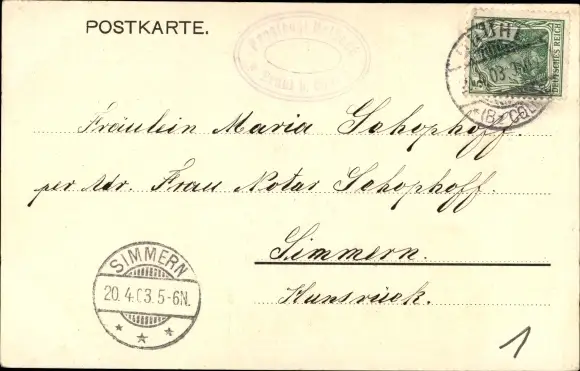 POSTKARTE.
DEUTSCHES REICH
Fräulein Maria Schophoff.
per Adr. Frau Notar Schophoff.
Simmern.
Hunsrück.
SIMMERN
20.4.03.5-6N.
1